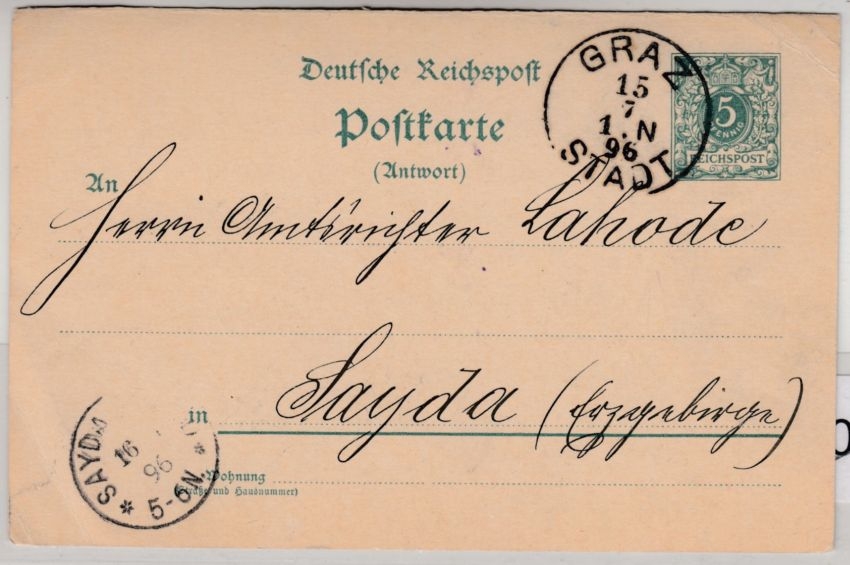 Deutsche Reichspost
Postkarte
(Antwort)
GRAZ
15
7
1. N
96
STADT
5
PFENNIG
REICHSPOST
An
Herrn Amtsrichter Lahode
in Sayda (Erzgebirge)
Wohnung
(Straße und Hausnummer)
* SAYDA *
16
96
5-6N